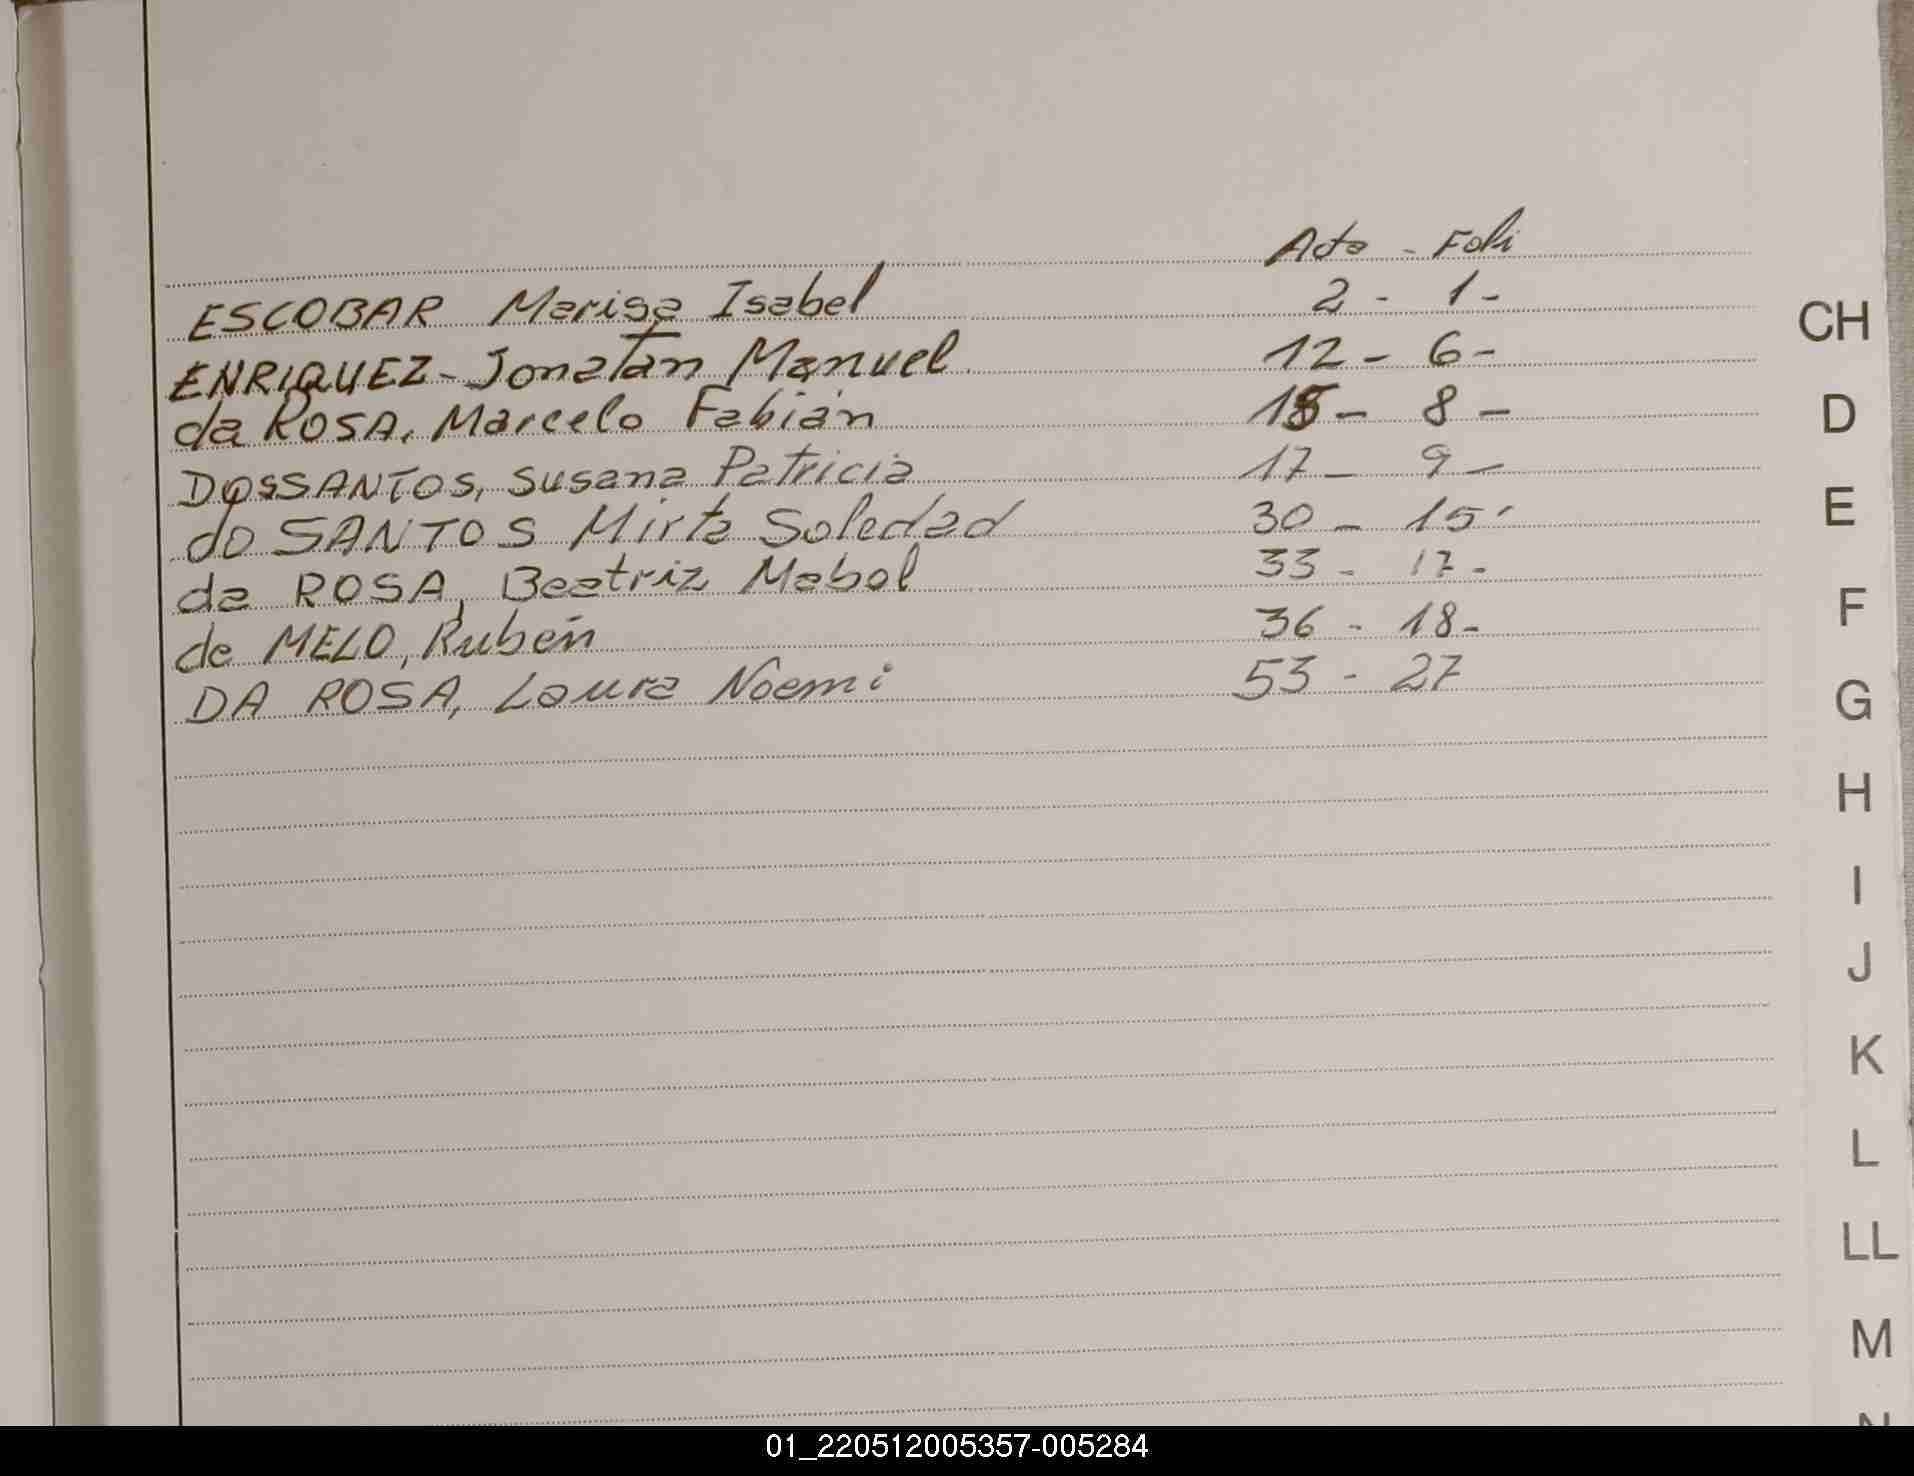 Acta - Foli
ESCOBAR Marisa Isabel 2 - 1 -
ENRIQUEZ - Jonatan Manuel 12 - 6 -
da ROSA, Marcelo Fabián 15 - 8 -
DOSSANTOS, Susana Patricia 17 - 9 -
do SANTOS Mirta Soledad 30 - 15
da ROSA, Beatriz Mabel 33 - 17 -
de MELO, Rubén 36 - 18 -
DA ROSA, Laura Noemi 53 - 27
CH
D
E
F
G
H
I
J
K
L
LL
M
N
01_220512005357-005284